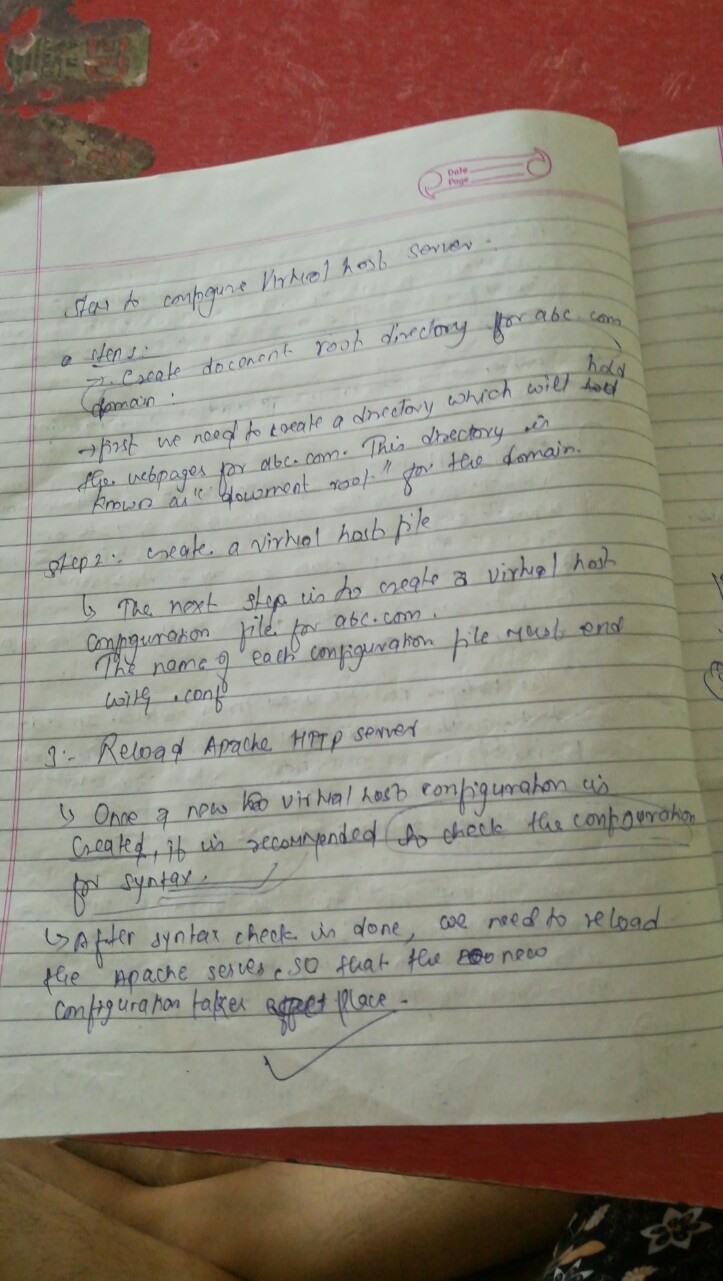 Date
Page
Step to configure Virtual host server.
Step 1:-
→ Create document root directory for abc.com
domain :
→ first we need to create a directory which will hold
the webpages for abc.com. This directory is
known as "document root" for the domain.
Step 2:- create a virtual host file
↳ The next step is to create a virtual host
configuration file for abc.com.
The name of each configuration file must end
with .conf
3:- Reload Apache HTTP server
↳ Once a new virtual host configuration is
created, it is recommended to check the configuration
for syntax.
↳ After syntax check is done, we need to reload
the Apache server. so that the new
configuration takes place.